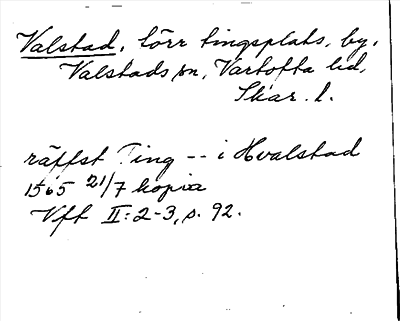 Valstad, förr tingsplats, by,
Valstads sn, Vartofta hd,
Skar. l.
räffst Ting -- i Hvalstad
1565 21/7 kopia
Vft II: 2-3, s. 92.